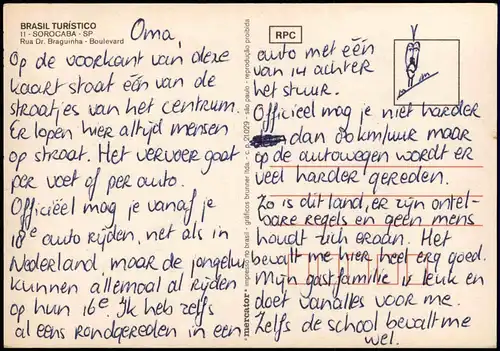 BRASIL TURÍSTICO
11 - SOROCABA - SP
Rua Dr. Braguinha - Boulevard
Oma,
Op de voorkant van deze
kaart staat één van de
straatjes van het centrum.
Er lopen hier altijd mensen
op straat. Het vervoer gaat
per voet of per auto.
Officiëel mag je vanaf je
18e auto rijden, net als in
Nederland, maar de jongelui
kunnen allemaal al rijden
op hun 16e. Ik heb zelfs
al eens rondgereden in een
mercator impresso no brasil - gráficos brunner ltda. - c. p. 21.029 - são paulo - reprodução proibida
RPC
auto met één
van 14 achter
het stuur.
Officiëel mag je niet harder
dan 80 km/uur maar
op de autowegen wordt er
veel harder gereden.
Zo is dit land, er zijn ontel-
bare regels en geen mens
houdt zich eraan. Het
bevalt me hier heel erg goed.
Mijn gastfamilie is leuk en
doet vanalles voor me.
Zelfs de school bevalt me
wel.